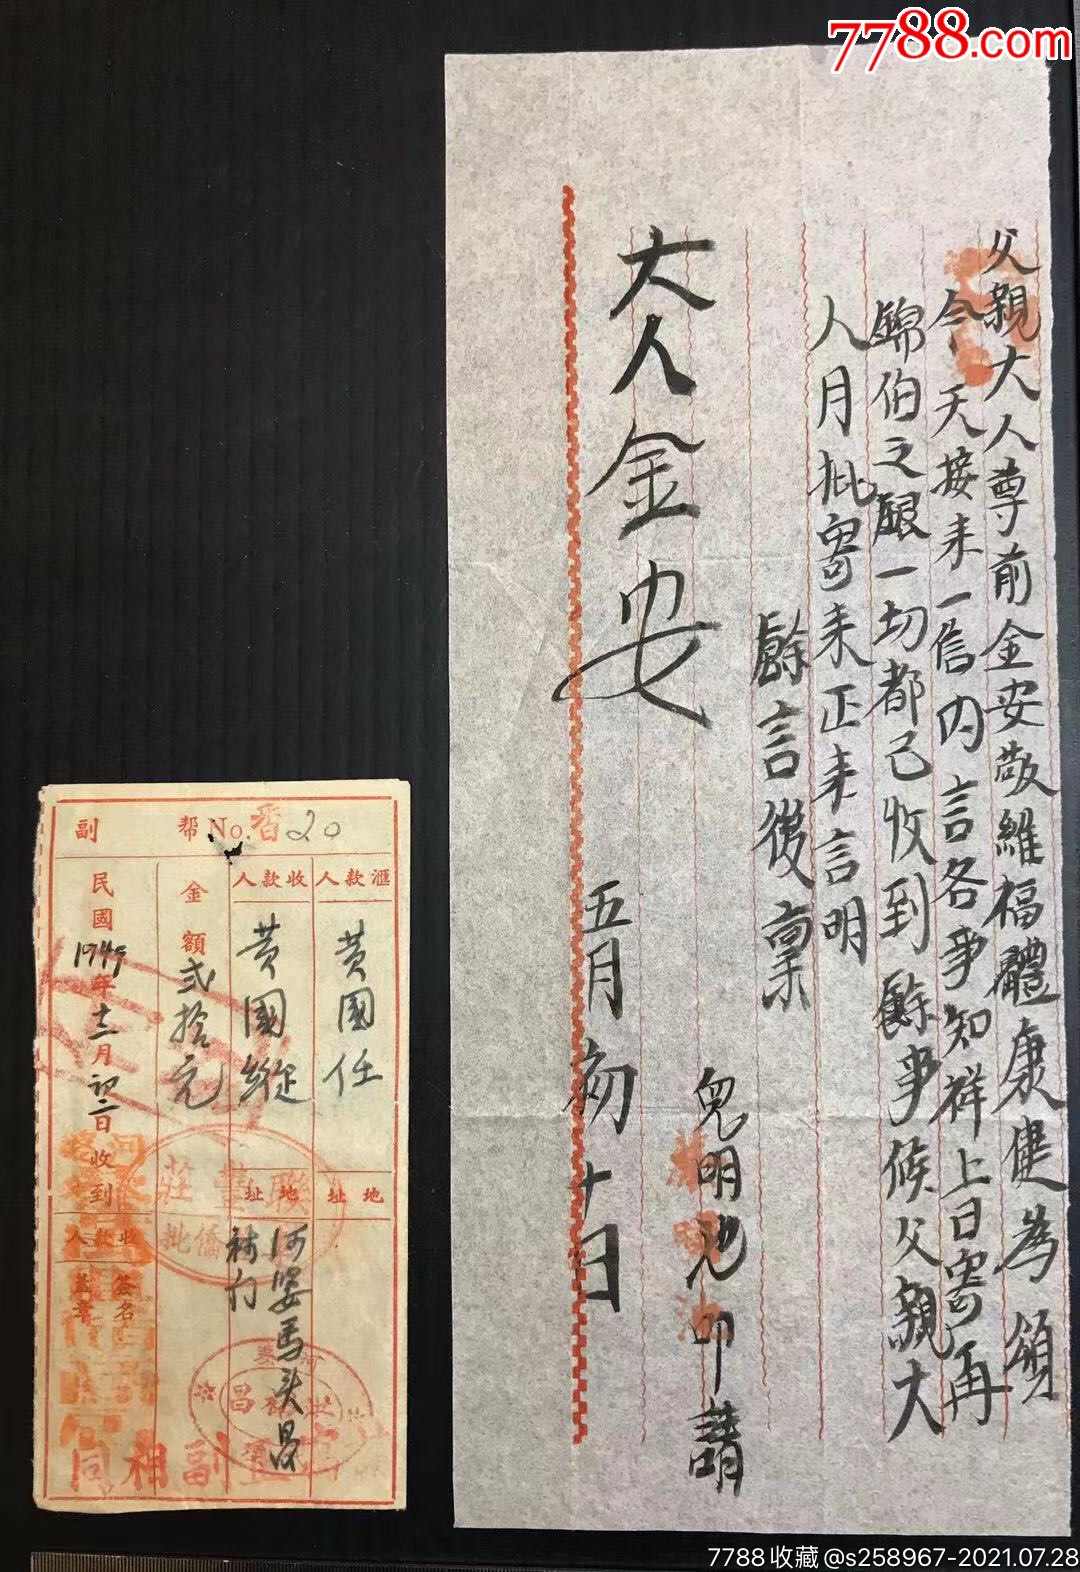 7788.com
父親大人尊前金安敬維福體康健為頌
今天接来一信內言各事知祥上日寄再
錦伯之銀一切都已收到餘事候父親大
人月批寄来正来言明
餘言後稟
兒明池叩請
大人金安
五月初十日
副 帮 No. 香 20
滙款人 黄國任
地址
收款人 黄國縱
地址 河婆馬头昌
金額 弍拾元
民國1949年十二月初二日收到
收款人
簽名
蓋章
聯豐莊
僑批
副相同
7788收藏@s258967-2021.07.28